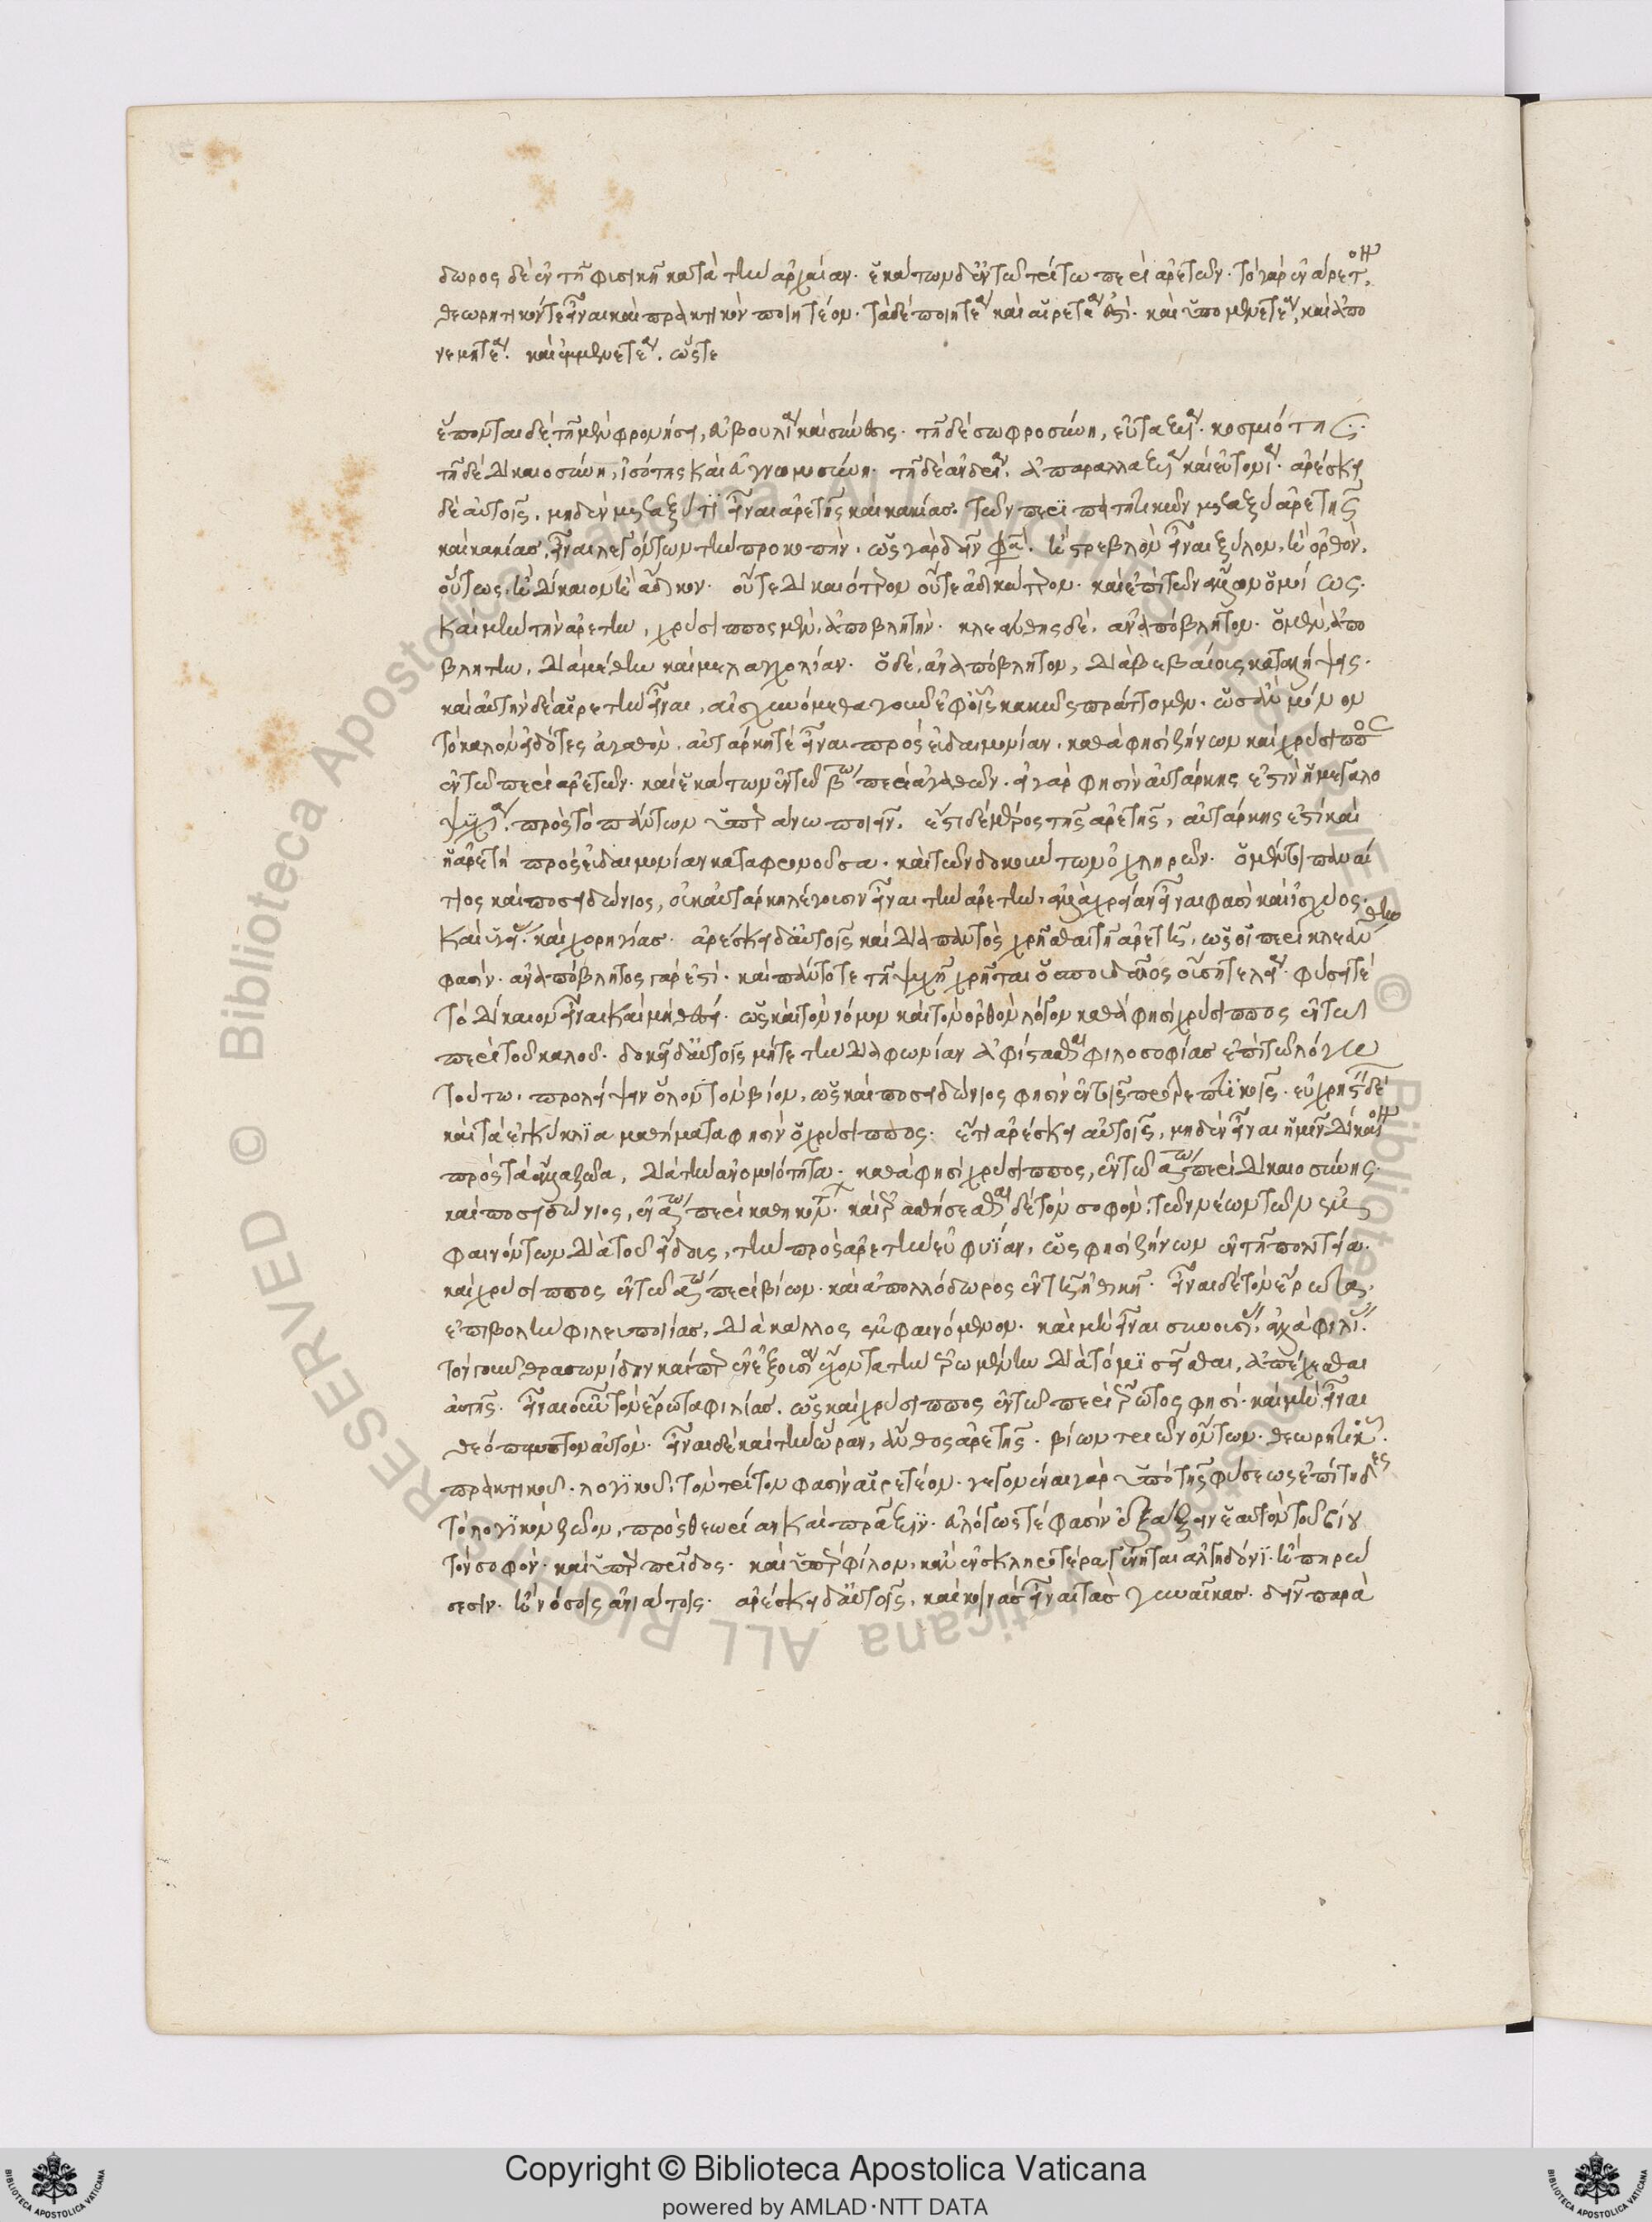 δωρος δὲ ἐν τῇ φυσικῇ κατὰ τὴν ἀρχαίαν. ἑκάτων δ' ἐν τῷ τρίτω περὶ ἀρετῶν. τὸν γὰρ ἐνάρετον,
θεωρητικόν τε εἶναι καὶ πρακτικὸν ποιητέον. τὰ δὲ ποιητέα καὶ αἱρετέα ἐστί. καὶ ὑπομενετέα, καὶ ἀπο
νεμητέα. καὶ ἐμμενετέα. ὥστε
ἕπονται δὲ τῇ μὲν φρονήσει, εὐβουλία καὶ σύνεσις. τῇ δὲ σωφροσύνη, εὐταξία. κοσμιότης.
τῇ δὲ δικαιοσύνη, ἰσότης καὶ εὐγνωμοσύνη. τῇ δὲ ἀνδρεία. ἀπαραλλαξία καὶ εὐτονία. ἀρέσκει
δὲ αὐτοῖς, μηδὲν μεταξύ τι εἶναι ἀρετῆς καὶ κακίας. τῶν περιπατητικῶν μεταξὺ ἀρετῆς
καὶ κακίας, εἶναι λεγόντων τὴν προκοπήν. ὡς γὰρ δεῖν φασὶ. ἢ στρεβλὸν εἶναι ξύλον, ἢ ὀρθόν,
οὕτως, ἢ δίκαιον ἢ ἄδικον. οὔτε δικαιότερον οὔτε ἀδικώτερον. καὶ ἐπὶ τῶν ἄλλων ὁμοίως.
καὶ μὴν τὴν ἀρετὴν, χρύσιππος μὲν, ἀποβλητήν. κλεάνθης δὲ, ἀναπόβλητον. ὁ μὲν, ἀπο
βλητὴν, διὰ μέθην καὶ μελαγχολίαν. ὁ δὲ, ἀναπόβλητον, διὰ βεβαίους καταλήψεις.
καὶ αὐτὴν δὲ αἱρετὴν εἶναι, αἰσχυνόμεθα γοῦν ἐφ' οἷς κακῶς πράττομεν. ὡς ἂν μόνον
τὸ καλὸν εἰδότες ἀγαθόν. αὐτάρκη τε εἶναι πρὸς εὐδαιμονίαν. καθά φησι ζήνων καὶ χρύσιππος
ἐν τῷ περὶ ἀρετῶν. καὶ ἑκάτων ἐν τῷ βω περὶ ἀγαθῶν. εἰ γὰρ φησὶν αὐτάρκης ἐστὶν ἡ μεγαλο
ψυχία. πρὸς τὸ πάντων ὑπεράνω ποιεῖν. ἔστι δὲ μέρος τῆς ἀρετῆς, αὐτάρκης ἐστὶ καὶ
ἡ ἀρετὴ πρὸς εὐδαιμονίαν καταφρονοῦσα. καὶ τῶν δοκούντων ὀχληρῶν. ὁ μέντοι παναί
τιος καὶ ποσειδώνιος, οὐκ αὐτάρκη λέγουσιν εἶναι τὴν ἀρετὴν, ἀλλὰ χρείαν εἶναι φασὶ καὶ ἰσχύος.
καὶ ὑγείας. καὶ χορηγίας. ἀρέσκει δ' αὐτοῖς καὶ διαπαντὸς χρῆσθαι τῇ ἀρετῇ, ὡς οἱ περὶ κλεάνθην
φασίν. ἀναπόβλητος γάρ ἐστι. καὶ πάντοτε τῇ ψυχῇ χρῆται ὁ σπουδαῖος οὔση τελεία. φύσει τε
τὸ δίκαιον εἶναι καὶ μὴ θέσει. ὡς καὶ τὸν νόμον καὶ τὸν ὀρθὸν λόγον καθά φησι χρύσιππος ἐν τῷ
περὶ τοῦ καλοῦ. δοκεῖ δ' αὐτοῖς μήτε τὴν διαφωνίαν ἀφίστασθαι φιλοσοφίας ἐπὶ τῷ λόγω
τούτω. προλείψειν ὅλον τὸν βίον, ὡς καὶ ποσειδώνιος φησὶν ἐν τοῖς προτρεπτικοῖς. εὐχρηστεῖν δὲ
καὶ τὰ ἐγκύκλια μαθήματα φησὶν ὁ χρύσιππος. ἔτι ἀρέσκει αὐτοῖς, μηδὲν εἶναι ἡμῖν δίκαιον
πρὸς τὰ ἄλλα ζῶα, διὰ τὴν ἀνομοιότητα. καθά φησι χρύσιππος, ἐν τῷ αω περὶ δικαιοσύνης.
καὶ ποσειδώνιος, ἐν αω περὶ καθήκοντος. καὶ ἐρασθήσεσθαι δὲ τὸν σοφὸν, τῶν νέων τῶν ἐμ
φαινόντων διὰ τοῦ εἴδους, τὴν πρὸς ἀρετὴν εὐφυΐαν, ὥς φησι ζήνων ἐν τῇ πολιτεία.
καὶ χρύσιππος ἐν τῷ αω περὶ βίων. καὶ ἀπολλόδωρος ἐν τῇ ἠθικῇ. εἶναι δὲ τὸν ἔρωτα,
ἐπιβολὴν φιλοποιίας, διὰ κάλλος ἐμφαινόμενον. καὶ μὴ εἶναι συνουσίας, ἀλλὰ φιλίας.
τὸν γοῦν θρασωνίδην καίπερ ἐν ἐξουσία ἔχοντα τὴν ἐρωμένην διὰ τὸ μισεῖσθαι, ἀπέχεσθαι
αὐτῆς. εἶναι οὖν τὸν ἔρωτα φιλίας, ὡς καὶ χρύσιππος ἐν τῷ περὶ ἔρωτος φησὶ. καὶ μὴ εἶναι
θεόπεμπτον αὐτόν. εἶναι δὲ καὶ τὴν ὥραν, ἄνθος ἀρετῆς. βίων τριῶν ὄντων. θεωρητικοῦ.
πρακτικοῦ. λογικοῦ. τὸν τρίτον φασὶν αἱρετέον. γεγονέναι γὰρ ὑπὸ τῆς φύσεως ἐπίτηδες
τὸ λογικὸν ζῶον, πρὸς θεωρίαν καὶ πρᾶξιν. εὐλόγως τέ φασὶν ἐξάξειν ἑαυτὸν τοῦ βίου
τὸν σοφόν. καὶ ὑπὲρ πατρίδος. καὶ ὑπὲρ φίλων, κἂν ἐν σκληροτέρα γένηται ἀλγηδόνι. ἢ πηρώ
σεσιν. ἢ νόσοις ἀνιάτοις. ἀρέσκει δ' αὐτοῖς, καὶ κοινὰς εἶναι τὰς γυναῖκας. δεῖν παρὰ
Copyright © Biblioteca Apostolica Vaticana
powered by AMLAD·NTT DATA